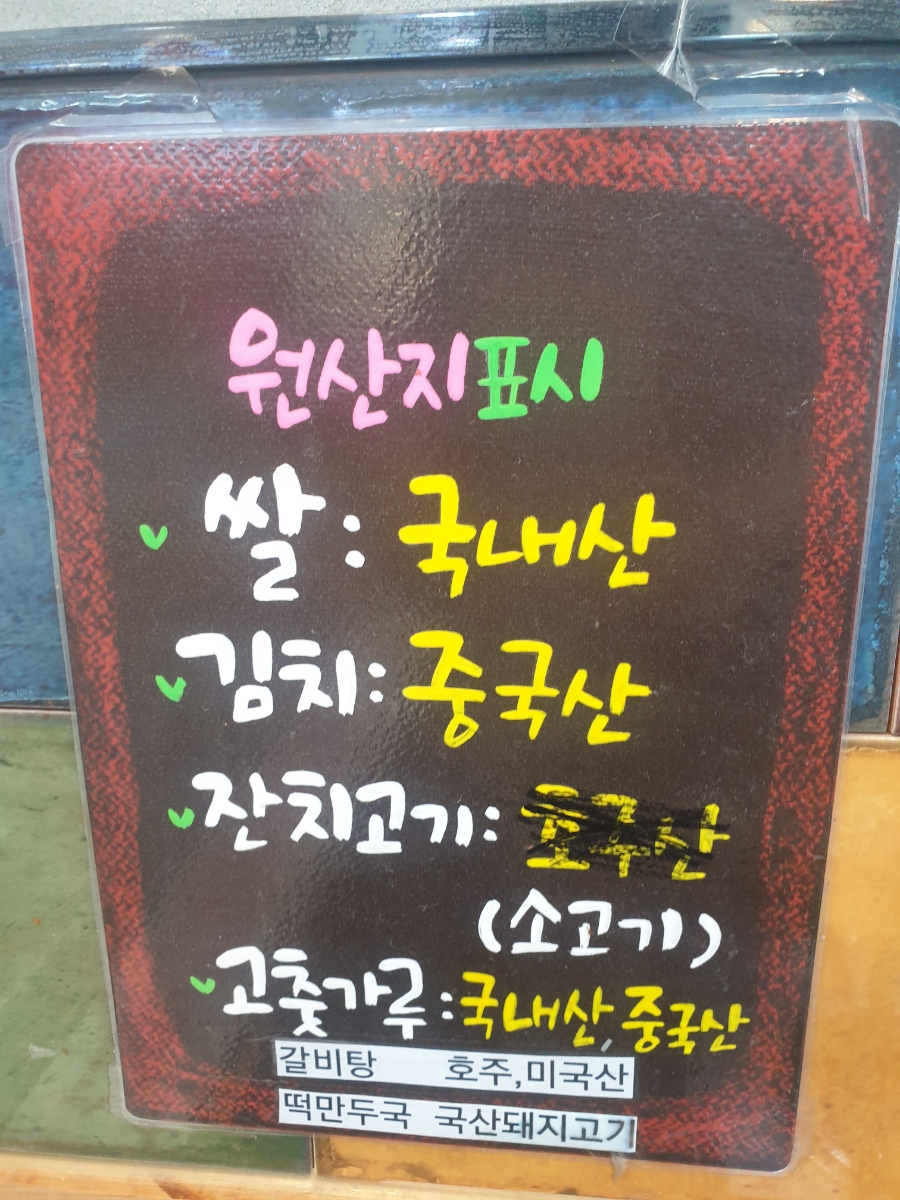 원산지표시
쌀: 국내산
김치: 중국산
잔치고기: 호주산
(소고기)
고춧가루: 국내산, 중국산
갈비탕 호주,미국산
떡만두국 국산돼지고기